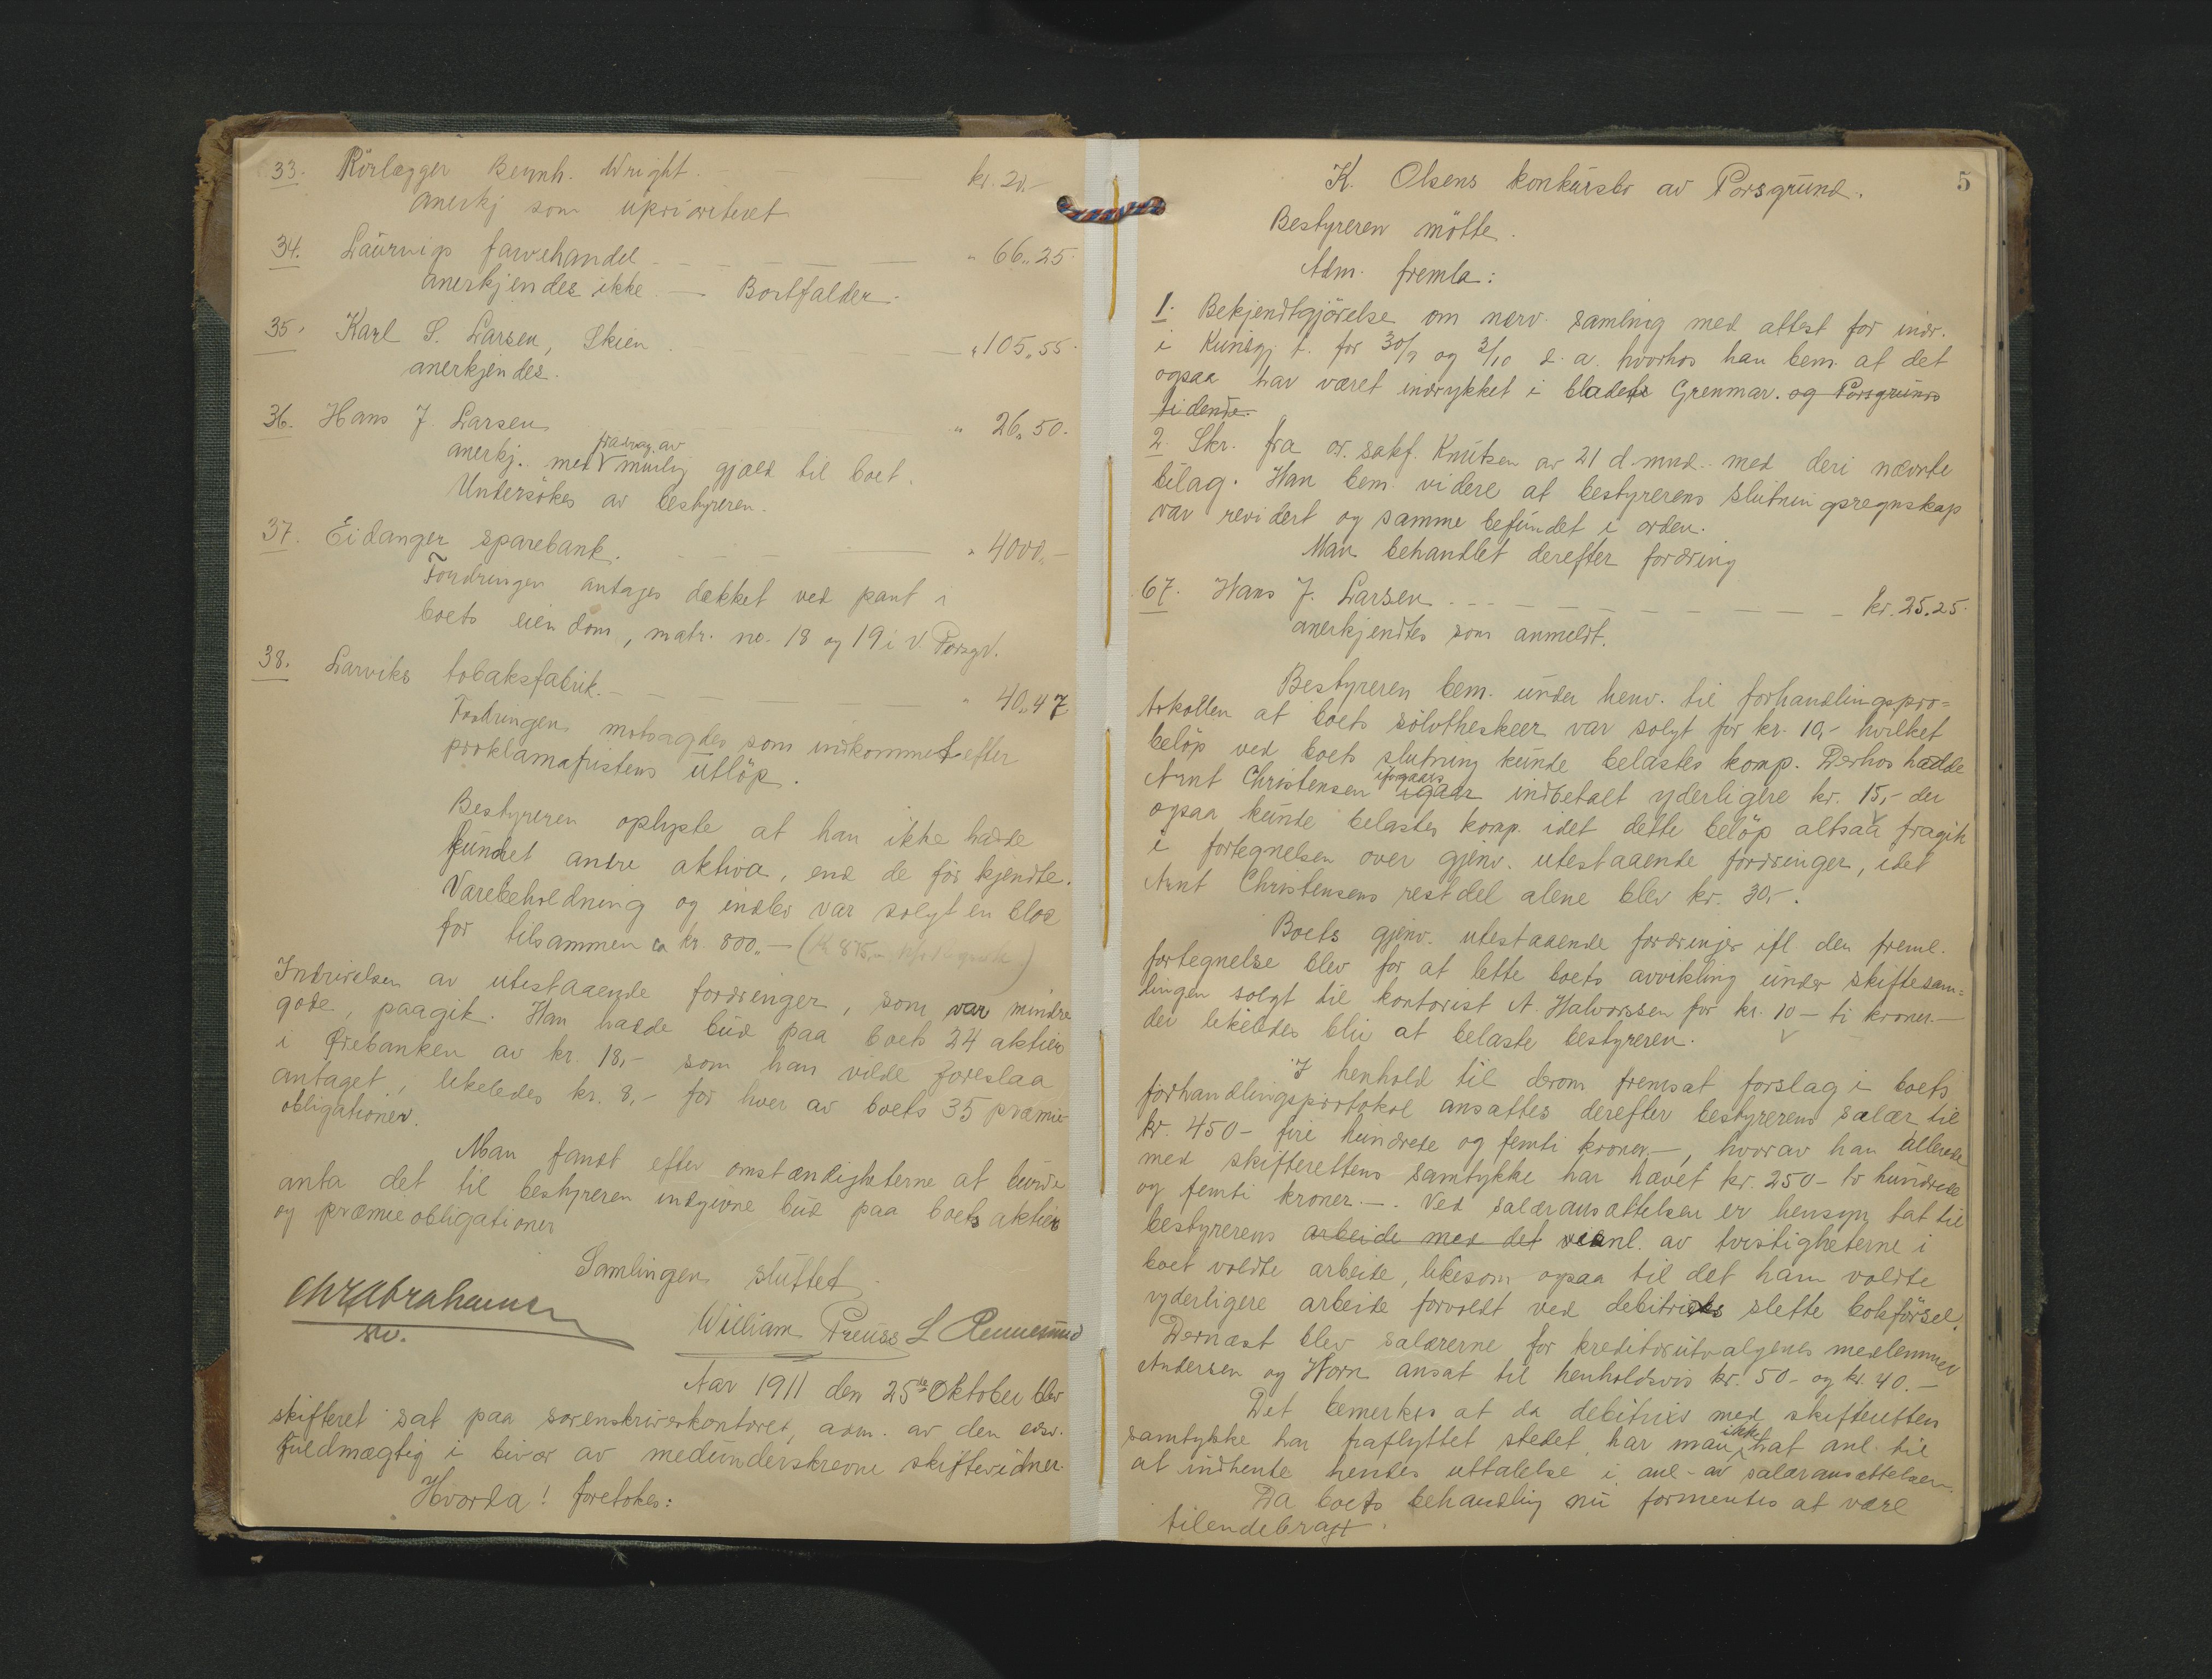 33. Rörlægger Bernh. Wright. — kr. 20.-
anerkj som uprioriteret
34. Laurvigs farvehandel - - - — " 66,,25.
anerkjendes ikke. — Bortfalder.
35. Karl S. Larsen, Skien. — " 105,,55.
anerkjendes.
36. Hans J. Larsen — " 26,,50.
fradrag av
anerkj. med mulig gjæld til boet.
Undersökes av bestyreren.
37. Eidanger sparebank. - - - — " 4000,-
Fordringen antages dækket ved pant i
boets eiendom, matr. no. 18 og 19 i V. Porsgr.
38. Larviks tobaksfabrik. - - — " 40,,47
Fordringen motsagdes som indkommet efter
proklamafristens utlöp.
Bestyreren oplyste at han ikke hadde
fundet andre aktiva, end de för kjendte.
Varebeholdning og indbo var solgt en bloc
for tilsammen ca kr. 800,,- (Kr 875,-
Indrivelsen av utestaaende fordringer, som var mindre
gode, paagik. Han hadde bud paa boets 24 aktier
i Örebanken av kr. 18,- som han vilde foreslaa
antaget, likeledes kr. 8,- for hver av boets 35 præmie
obligationer.
Man fandt efter omstændigheterne at burde
anta det til bestyreren indgivne bud paa boets aktier
og præmieobligationer
Samlingen sluttet
Chr Abrahamsen
sv.
William Preuss L Rennesund
Aar 1911 den 25de Oktober blev
skifteret sat paa sorenskriverkontoret, adm. av den edsv.
fuldmægtig i bivær av medunderskrevne skiftevidner.
Hvorda! foretokes:
5
K. Olsens konkursbo av Porsgrund.
Bestyreren mötte.
Adm. fremla:
1. Bekjendtgjörelse om nærv. samling med attest for indr.
i Kundgj. t. for 30/9 og 3/10 d. a. hvorhos han bem. at det
ogsaa har været indrykket i bladet Grenmar. og Porsgrunds
tidende.
2. Skr. fra or. sakf. Knutsen av 21 d. mnd. med deri nævnte
bilag. Han bem. videre at bestyrerens slutningsregnskap
var revidert og samme befundet i orden.
Man behandlet derefter fordring
67. Hans J. Larsen - - - - — kr. 25.25.
anerkjendtes som anmeldt.
Bestyreren bem. under henv. til forhandlingspro=
tokollen at boets sölvtheskeer var solgt for kr. 10,- hvilket
belöp ved boets slutning kunde belastes komp. Derhos hadde
iforgaars
Arnt Christensen igaar indbetalt yderligere kr. 15,- der
ogsaa kunde belastes komp. idet dette belöp altsaa fragik
i fortegnelsen over gjenv. utestaaende fordringer, idet
Arnt Christensens restdel alene blev kr. 30,-.
Boets gjenv. utestaaende fordringer ifl. den freml.
fortegnelse blev for at lette boets avvikling under skiftesam=
lingen solgt til kontorist A. Halvorssen for kr. 10 - ti kroner.—
der likeledes blir at belaste bestyreren.
I henhold til derom fremsat forslag i boets
forhandlingsprotokol ansattes derefter bestyrerens salær til
kr. 450 - fire hundrede og femti kroner -, hvorav han allerede
med skifterettens samtykke har hævet kr. 250 - to hundrede
og femti kroner -. Ved salæransættelsen er hensyn tat til
bestyrerens arbeide med det vidl. av tvistigheterne i
boet voldte arbeide, likesom ogsaa til det ham voldte
yderligere arbeide forvoldt ved debitricens slette bokförsel.
Dernæst blev salærerne for kreditorutvalgenes medlemmer
Andersen og Horn ansat til henholdsvis kr. 50 - og kr. 40.—
Det bemerkes at da debitrix med skifterettens
ikke
samtykke har fraflyttet stedet har man hat anl. til
at indhente hendes uttalelse i anl. av salæransættelsen.
Da boets behandling nu formentes at være
tilendebragt.